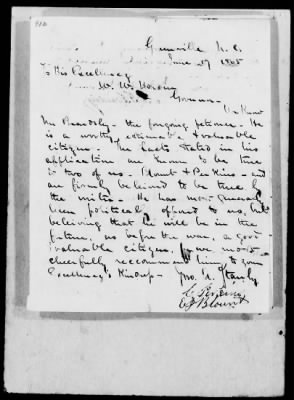 Greenville N. C.
June 27 1865
To His Excellency
W. W. Holden
Governor.
We know
Mr Beardsly - the forgoing petitioner - He
is a worthy, estimable & valuable
citizen. The facts stated in his
application are known to be true
to two of us - Blount & Perkins - and
are firmly believed to be true by
the writer. He has most generally
been politically opposed to us, but
believing that he will be in the
future, as before the war, a good
& valuable citizen, we most
cheerfully reccommend him to your
Excellency's
Jno. A. Stanly
C Perkins
Blount